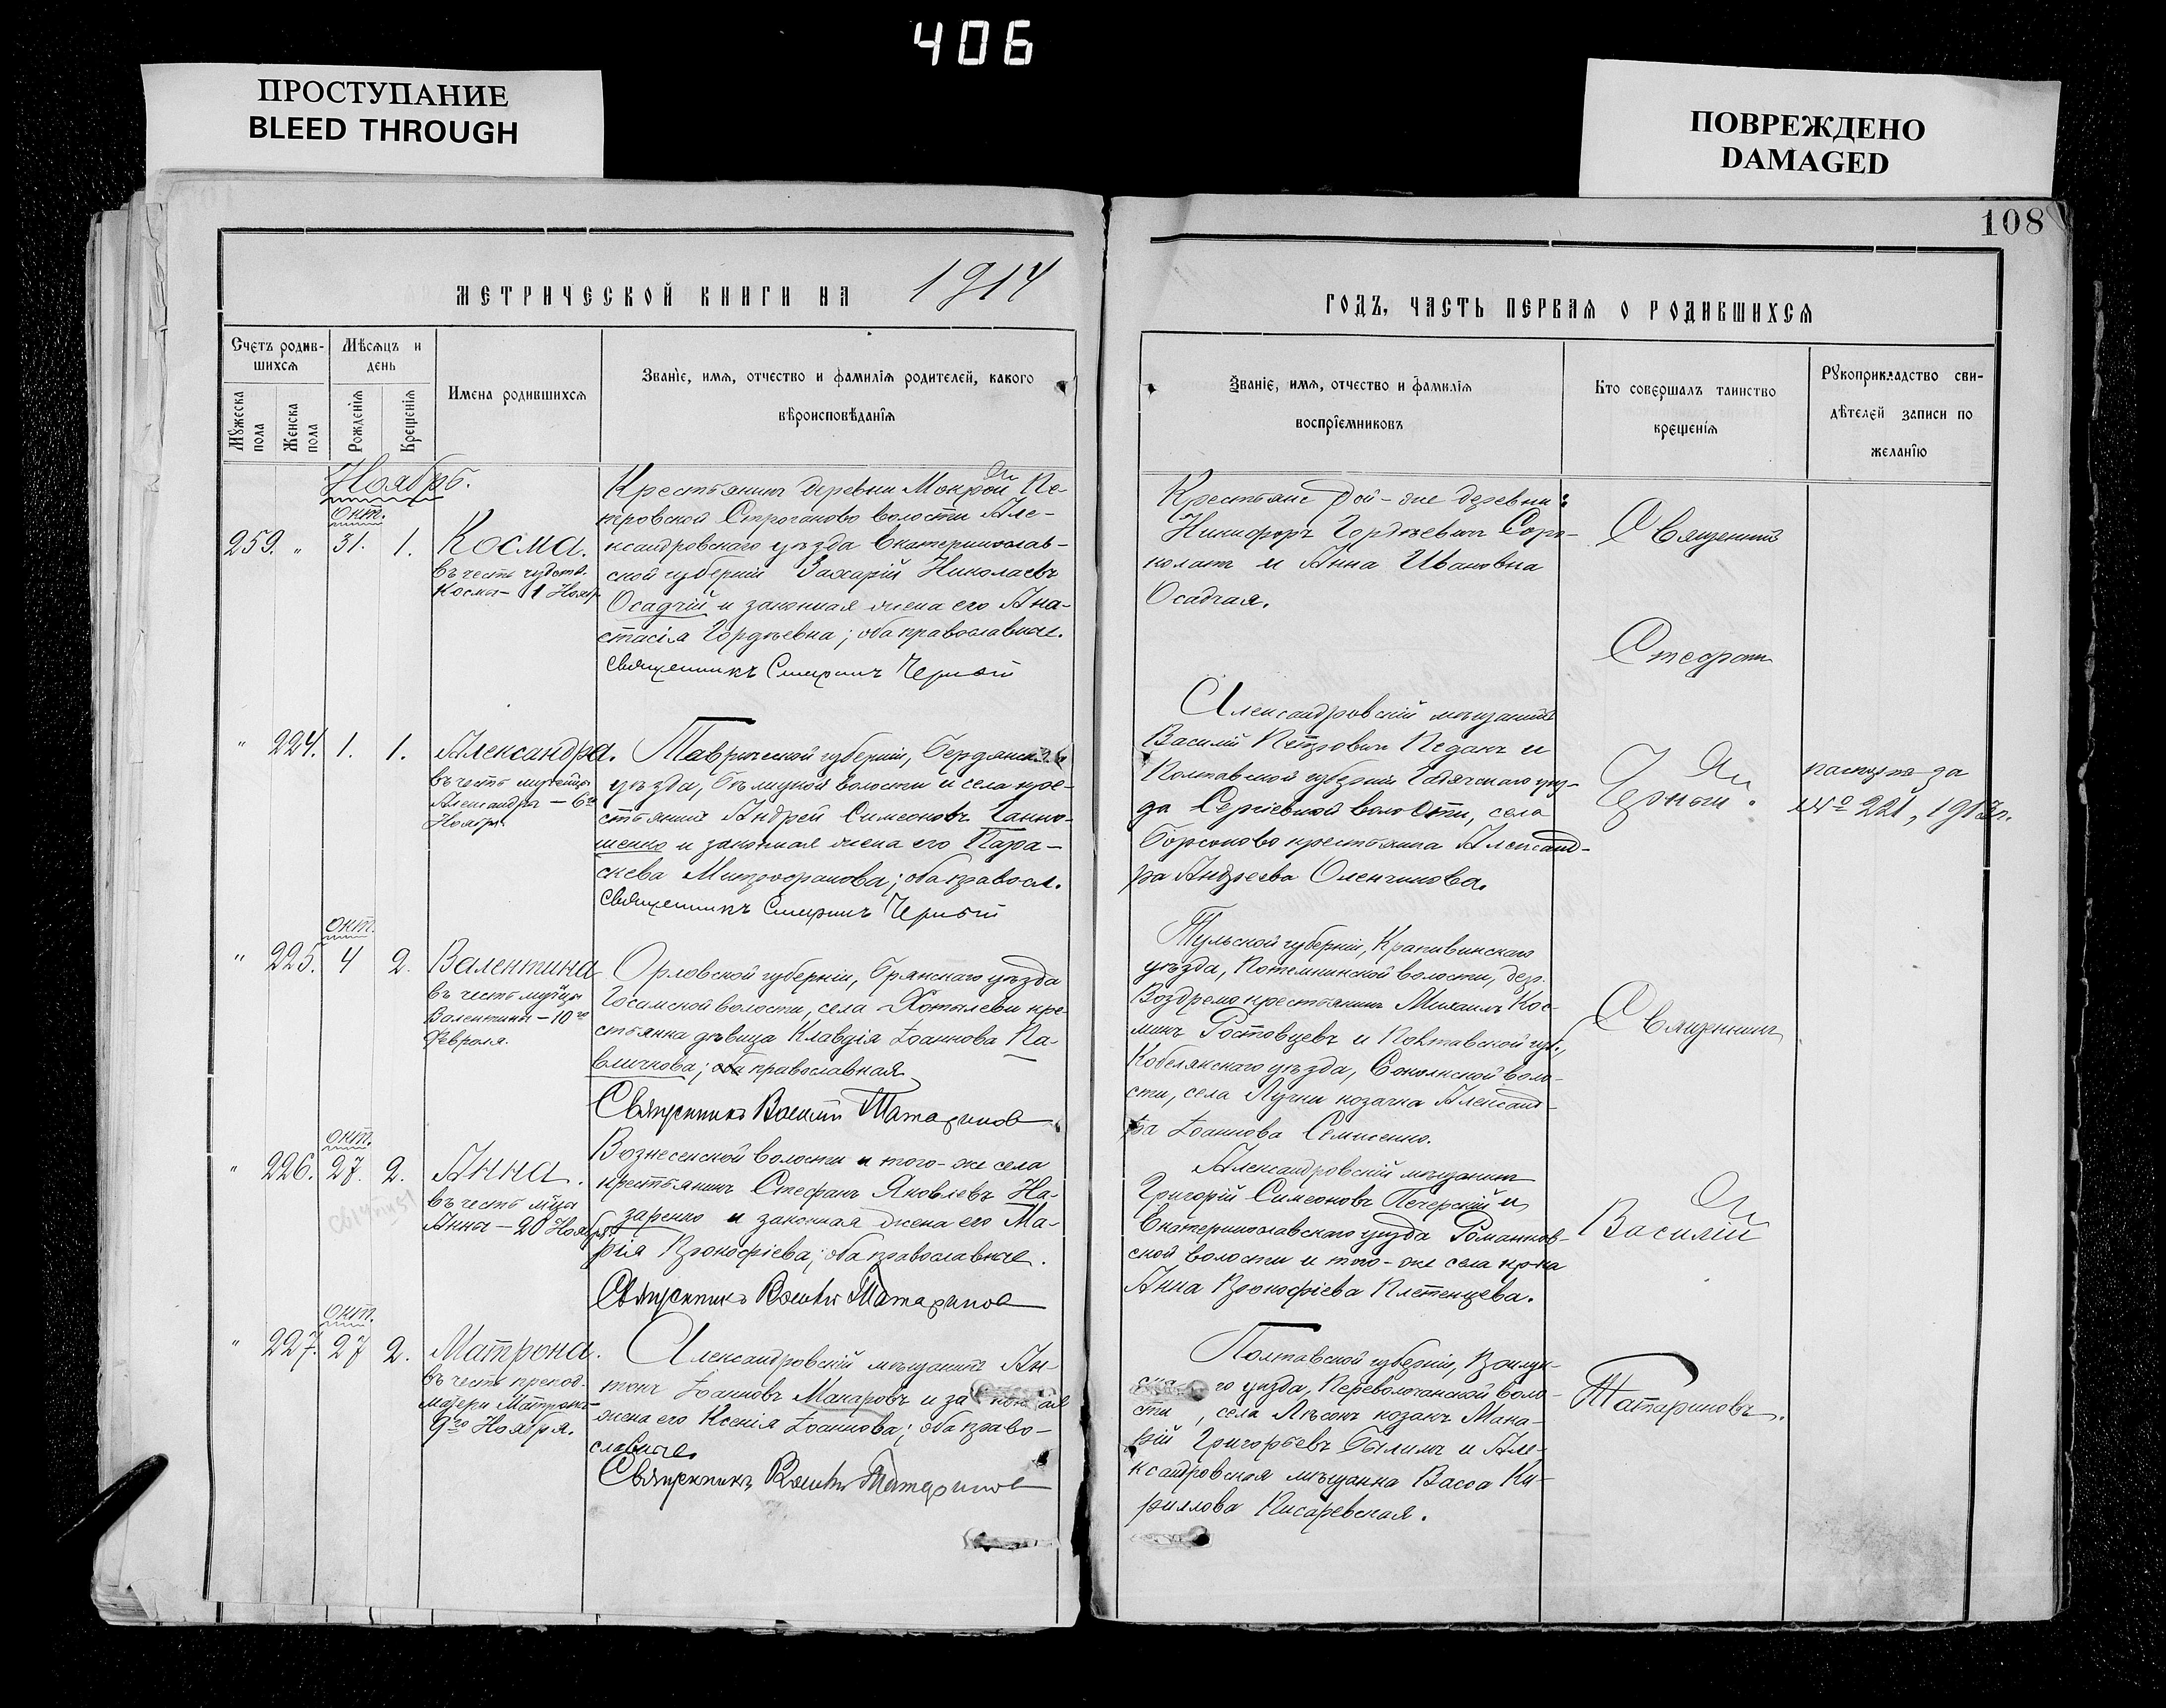 406
ПРОСТУПАНИЕ
BLEED THROUGH
ПОВРЕЖДЕНО
DAMAGED
108
МЕТРИЧЕСКОЙ КНИГИ НА 1914
ГОДЪ, ЧАСТЬ ПЕРВАЯ О РОДИВШИХСЯ
Счетъ родив-
шихся
Мѣсяцъ и
день
Мужеска
пола
Женска
пола
Рожденія
Крещенія
Имена родившихся
Званіе, имя, отчество и фамилія родителей, какого
вѣроисповѣданія
Званіе, имя, отчество и фамилія
воспріемниковъ
Кто совершалъ таинство
крещенія
Рукоприкладство сви-
дѣтелей записи по
желанію
Ноябрь.
окт.
259. " 31. 1. Косма.
въ честь чудотв.
Космы — 1 Нояб.
Крестьянинъ деревни Мокрой, Пе-
тровской Строганово волости Але-
ксандровскаго уѣзда Екатеринослав-
ской губерніи Захарій Николаевъ
Осадчій и законная жена его Ана-
стасія Гордѣевна; оба православные.
Священникъ Стефанъ Черный
Крестьяне той-же деревни:
Никифоръ Гордѣевичъ Соро-
колатъ и Анна Ивановна
Осадчая.
Священникъ
Стефанъ
Черный.
" 224. 1. 1. Александра.
въ честь мученицы
Александры — 6го
Ноября.
Таврической губерніи, Бердянска
уѣзда, волости и села кре-
стьянинъ Андрей Симеоновъ Ганно-
шенко и законная жена его Пара-
скева Митрофанова; оба правосл.
Священникъ Стефанъ Черный
Александровскій мѣщанинъ
Василій Петровичъ Педанъ и
Полтавской губерніи Гадячскаго уѣз-
да Сергіевской волости, села
крестьянка Александ-
ра Андреева Оленчикова.
паспортъ за
№ 221, 1913г.
окт.
" 225. 4 2. Валентина
въ честь муч-цы
Валентины — 10го
Февраля.
Орловской губерніи, Брянскаго уѣзда
волости, села Хотылеви кре-
стьянка дѣвица Клавдія Іоаннова Па-
вличкова; оба православная
Священникъ Василій Татариновъ
Тульской губерніи, Крапивинскаго
уѣзда, Потемкинской волости, дер.
Воздремо крестьянинъ Михаилъ Кос-
минъ Ростовцевъ и Полтавской губ.,
Кобелякскаго уѣзда, Сокольской воло-
сти, села Лучки козачка Александ-
ра Іоаннова Семисенко.
Священникъ
окт.
" 226. 27. 2. Анна.
въ честь м-цы
Анны — 20 Ноября
Вознесенской волости и того-же села
крестьянинъ Стефанъ Яковлевъ На-
заренко и законная жена его Ма-
рія Прокофіева; оба православные.
Священникъ Василій Татариновъ
Александровскій мѣщанинъ
Григорій Симеоновъ Печерскій и
Екатеринославскаго уѣзда Романков-
ской волости и того-же села кр-ка
Анна Прокофіева Плетенцева.
Василій
окт.
" 227. 27 2. Матрона.
въ честь препод.
матери Матроны
9го Ноября.
Александровскій мѣщанинъ Ан-
тонъ Іоанновъ Макаровъ и законная
жена его Ксенія Іоаннова; оба право-
славные.
Священникъ Василій Татариновъ
Полтавской губерніи,
го уѣзда, Переволочанской воло-
сти, села козакъ Мака-
рій Григорьевъ Былимъ и Але-
ксандровская мѣщанка Васса Ки-
риллова Писаревская.
Татариновъ.